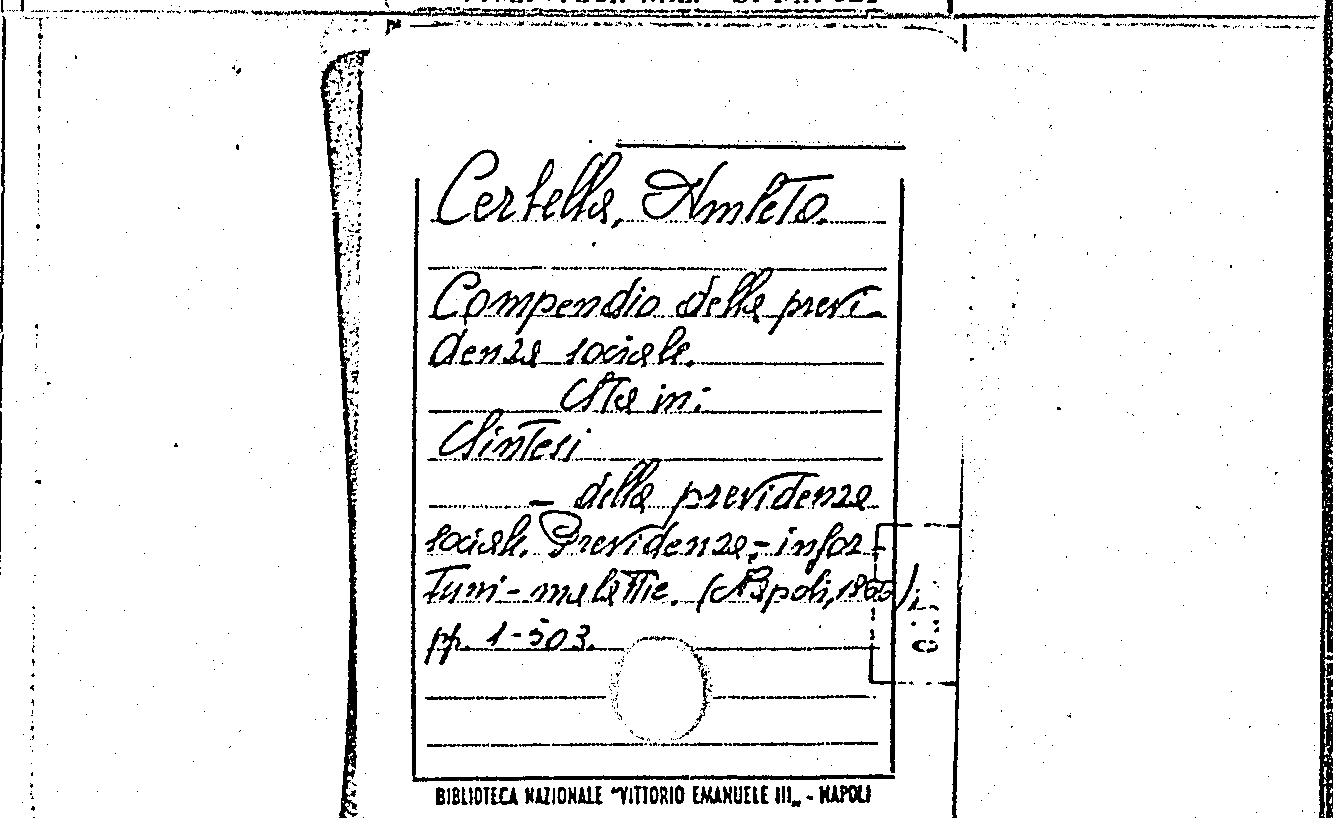 Certella, Amleto.
Compendio della previ-
denza sociale.
Sta in:
Sintesi
- della previdenza
sociale. Previdenza,- infor-
tuni - malattie. (Napoli,
pp. 1-503.
BIBLIOTECA NAZIONALE "VITTORIO EMANUELE III" - NAPOLI